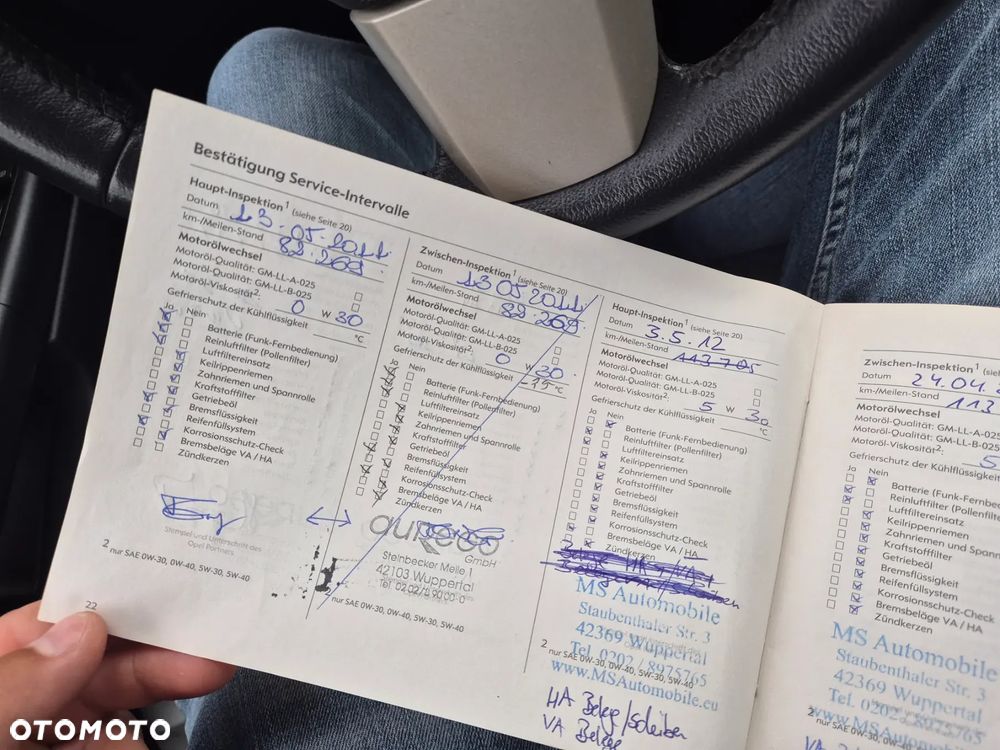 Bestätigung Service-Intervalle
Haupt-Inspektion¹ (siehe Seite 20)
Datum 13.05.2011
km-/Meilen-Stand 82.269
Motorölwechsel
Motoröl-Qualität: GM-LL-A-025
Motoröl-Qualität: GM-LL-B-025
Motoröl-Viskosität²: 0 W 30
Gefrierschutz der Kühlflüssigkeit °C
Ja Nein
Batterie (Funk-Fernbedienung)
Reinluftfilter (Pollenfilter)
Luftfiltereinsatz
Keilrippenriemen
Zahnriemen und Spannrolle
Kraftstofffilter
Getriebeöl
Bremsflüssigkeit
Reifenfüllsystem
Korrosionsschutz-Check
Bremsbeläge VA / HA
Zündkerzen
Stempel und Unterschrift des
Opel Partners
² nur SAE 0W-30, 0W-40, 5W-30, 5W-40
22
Zwischen-Inspektion¹ (siehe Seite 20)
Datum 13 05 2011
km-/Meilen-Stand 82.269
Motorölwechsel
Motoröl-Qualität: GM-LL-A-025
Motoröl-Qualität: GM-LL-B-025
Motoröl-Viskosität²: 0 W 30
Gefrierschutz der Kühlflüssigkeit °C
Ja Nein
Batterie (Funk-Fernbedienung)
Reinluftfilter (Pollenfilter)
Luftfiltereinsatz
Keilrippenriemen
Zahnriemen und Spannrolle
Kraftstofffilter
Getriebeöl
Bremsflüssigkeit
Reifenfüllsystem
Korrosionsschutz-Check
Bremsbeläge VA / HA
Zündkerzen
GmbH
Steinbecker Meile 1
42103 Wuppertal
² nur SAE 0W-30, 0W-40, 5W-30, 5W-40
Haupt-Inspektion¹ (siehe Seite 20)
Datum 3.5.12
km-/Meilen-Stand 113 705
Motorölwechsel
Motoröl-Qualität: GM-LL-A-025
Motoröl-Qualität: GM-LL-B-025
Motoröl-Viskosität²: 5 W 30
Gefrierschutz der Kühlflüssigkeit °C
Ja Nein
Batterie (Funk-Fernbedienung)
Reinluftfilter (Pollenfilter)
Luftfiltereinsatz
Keilrippenriemen
Zahnriemen und Spannrolle
Kraftstofffilter
Getriebeöl
Bremsflüssigkeit
Reifenfüllsystem
Korrosionsschutz-Check
Bremsbeläge VA / HA
Zündkerzen
MS Automobile
Staubenthaler Str. 3
42369 Wuppertal
Tel. 0202 / 8975765
www.MSAutomobile.eu
² nur SAE 0W-30, 0W-40, 5W-30, 5W-40
HA Beleg/scheiben
VA Belege
Zwischen-Inspektion¹
Datum 24.04.
km-/Meilen-Stand 113
Motorölwechsel
Motoröl-Qualität: GM-LL-A-025
Motoröl-Qualität: GM-LL-B-025
Motoröl-Viskosität²: 5
Gefrierschutz der Kühlflüssigkeit
Ja Nein
Batterie (Funk-Fernbedienung)
Reinluftfilter (Pollenfilter)
Luftfiltereinsatz
Keilrippenriemen
Zahnriemen und
Kraftstofffilter
Getriebeöl
Bremsflüssigkeit
Reifenfüllsystem
Korrosionsschutz-Check
Bremsbeläge VA / HA
Zündkerzen
MS Automobile
Staubenthaler Str. 3
42369 Wuppertal
Tel. 0202 / 8975765
² nur SAE 0W-30, 0W-40
VA
OTOMOTO